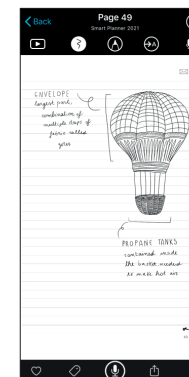 Back
Page 49
Smart Planner 2021
ENVELOPE
largest part,
combination of
multiple strips of
fabric called
gores
PROPANE TANKS
contained inside
the basket needed
to make hot air